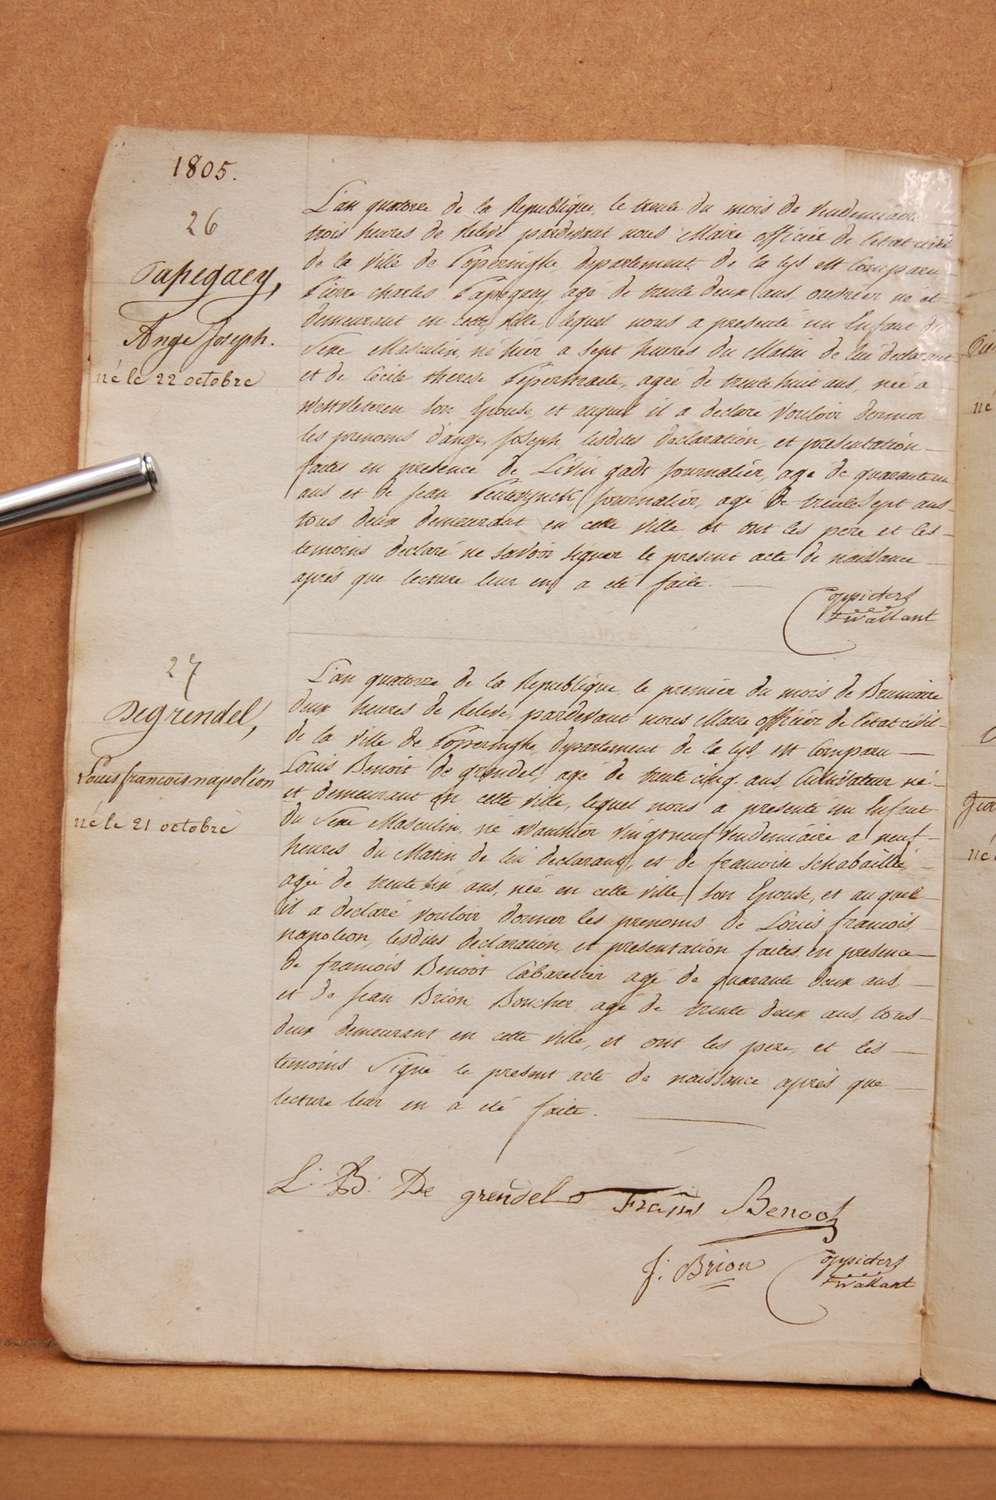 1805.
26
Papegaey,
Ange Joseph.
né le 22 octobre
L'an quatorze de la Republique, le trente du mois de Vendemiaire
trois heures de relevé pardevant nous Maire officier de l'etat civil
de la Ville de Poperinghe, departement de la Lys est Comparu
Pierre Charles Papegaey agé de trente deux ans, ouvrier né et
demeurant en cette Ville, lequel nous a presenté un Enfant du
Sexe Masculin, né hier a sept heures du Matin de lui declarant
et de Cécile therese Peperstraete, agée de trente huit ans, née a
Westvleteren son Epouse, et auquel il a declaré Vouloir donner
les prenoms d'ange Joseph lesdites declaration et presentation
faites en presence de Livin gade journalier, age de quarante un
ans et de Jean journalier, agé de trente sept ans
tous deux demeurant en cette Ville et ont les pere et les
temoins declaré ne savoir signer le present acte de naissance
aprés que lecture leur en a eté faite.
27
Degrendel,
Louis francois napoléon
né le 21 octobre
L'an quatorze de la Republique, le premier du mois de Brumaire
deux heures de relevé, pardevant nous Maire officier de l'etat civil
de la Ville de Poperinghe, departement de la Lys, est Comparu
Louis Benoit de grendel, agé de trente cinq ans, Cultivateur né
et demeurant en cette Ville, lequel nous a presenté un Enfant
du Sexe Masculin, né avanthier Vingtneuf Vendemiaire a neuf
heures du Matin de lui declarant, et de francoise Schabaillie,
agé de trente six ans, née en cette Ville, son Epouse, et au quel
il a declaré vouloir donner les prenoms de Louis francois
napoleon, lesdites declaration et presentation faites en presence
de francois Benoot Cabaretier agé de quarante deux ans,
et de Jean Brion Boucher agé de trente deux ans, tous
deux demeurant en cette Ville, et ont les pere, et les
temoins Signé le present acte de naissance aprés que
lecture leur en a eté faite.
L. B. De grendel Frans Benoot
J: Brion